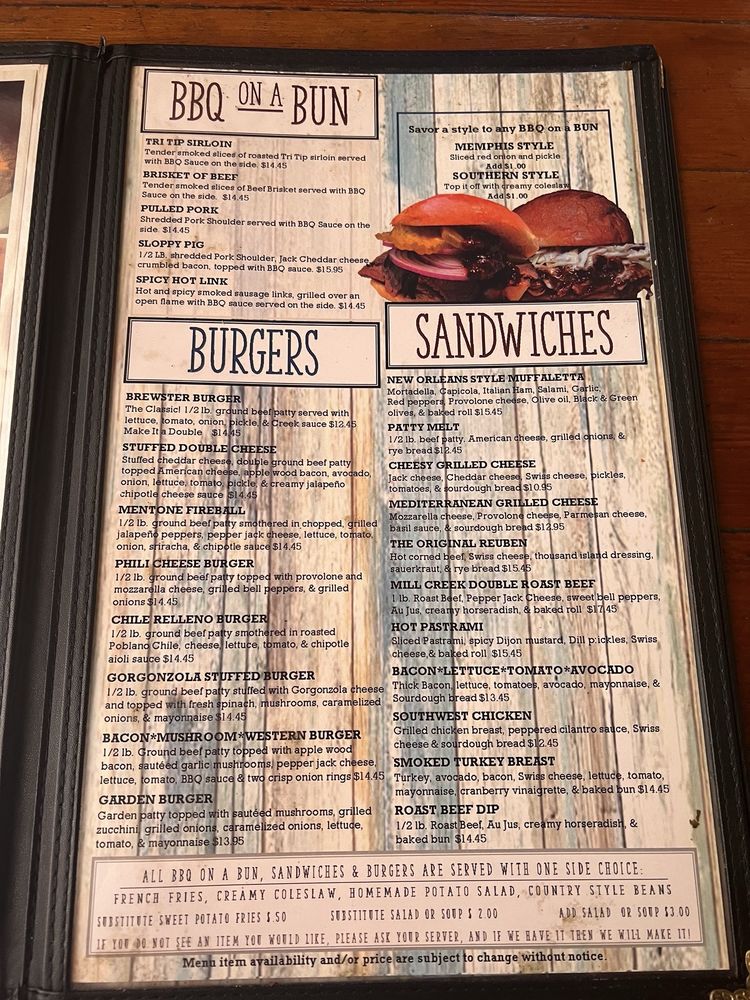 BBQ ON A BUN
TRI TIP SIRLOIN
Tender smoked slices of roasted Tri Tip sirloin served
with BBQ Sauce on the side. $14.45
BRISKET OF BEEF
Tender smoked slices of Beef Brisket served with BBQ
Sauce on the side. $14.45
PULLED PORK
Shredded Pork Shoulder served with BBQ Sauce on the
side. $14.45
SLOPPY PIG
1/2 LB. shredded Pork Shoulder, Jack Cheddar cheese,
crumbled bacon, topped with BBQ sauce. $15.95
SPICY HOT LINK
Hot and spicy smoked sausage links, grilled over an
open flame with BBQ sauce served on the side. $14.45
Savor a style to any BBQ on a BUN
MEMPHIS STYLE
Sliced red onion and pickle
Add $1.00
SOUTHERN STYLE
Top it off with creamy coleslaw
Add $1.00
BURGERS
BREWSTER BURGER
The Classic! 1/2 lb. ground beef patty served with
lettuce, tomato, onion, pickle, & Creek sauce $12.45
Make It a Double $14.45
STUFFED DOUBLE CHEESE
Stuffed cheddar cheese, double ground beef patty
topped American cheese, apple wood bacon, avocado,
onion, lettuce, tomato, pickle, & creamy jalapeño
chipotle cheese sauce $14.45
MENTONE FIREBALL
1/2 lb. ground beef patty smothered in chopped, grilled
jalapeño peppers, pepper jack cheese, lettuce, tomato,
onion, sriracha, & chipotle sauce $14.45
PHILI CHEESE BURGER
1/2 lb. ground beef patty topped with provolone and
mozzarella cheese, grilled bell peppers, & grilled
onions $14.45
CHILE RELLENO BURGER
1/2 lb. ground beef patty smothered in roasted
Poblano Chile, cheese, lettuce, tomato, & chipotle
aioli sauce $14.45
GORGONZOLA STUFFED BURGER
1/2 lb. ground beef patty stuffed with Gorgonzola cheese
and topped with fresh spinach, mushrooms, caramelized
onions, & mayonnaise $14.45
BACON*MUSHROOM*WESTERN BURGER
1/2 lb. Ground beef patty topped with apple wood
bacon, sautéed garlic mushrooms, pepper jack cheese,
lettuce, tomato, BBQ sauce & two crisp onion rings $14.45
GARDEN BURGER
Garden patty topped with sautéed mushrooms, grilled
zucchini, grilled onions, caramelized onions, lettuce,
tomato, & mayonnaise $13.95
SANDWICHES
NEW ORLEANS STYLE MUFFALETTA
Mortadella, Capicola, Italian Ham, Salami, Garlic,
Red peppers, Provolone cheese, Olive oil, Black & Green
olives, & baked roll $15.45
PATTY MELT
1/2 lb. beef patty, American cheese, grilled onions, &
rye bread $12.45
CHEESY GRILLED CHEESE
Jack cheese, Cheddar cheese, Swiss cheese, pickles,
tomatoes, & sourdough bread $10.95
MEDITERRANEAN GRILLED CHEESE
Mozzarella cheese, Provolone cheese, Parmesan cheese,
basil sauce, & sourdough bread $12.95
THE ORIGINAL REUBEN
Hot corned beef, Swiss cheese, thousand island dressing,
sauerkraut, & rye bread $15.45
MILL CREEK DOUBLE ROAST BEEF
1 lb. Roast Beef, Pepper Jack Cheese, sweet bell peppers,
Au Jus, creamy horseradish, & baked roll $17.45
HOT PASTRAMI
Sliced Pastrami, spicy Dijon mustard, Dill p:ickles, Swiss
cheese,& baked roll $15.45
BACON*LETTUCE*TOMATO*AVOCADO
Thick Bacon, lettuce, tomatoes, avocado, mayonnaise, &
Sourdough bread $13.45
SOUTHWEST CHICKEN
Grilled chicken breast, peppered cilantro sauce, Swiss
cheese & sourdough bread $12.45
SMOKED TURKEY BREAST
Turkey, avocado, bacon, Swiss cheese, lettuce, tomato,
mayonnaise, cranberry vinaigrette, & baked bun $14.45
ROAST BEEF DIP
1/2 lb. Roast Beef, Au Jus, creamy horseradish, &
baked bun $14.45
ALL BBQ ON A BUN, SANDWICHES & BURGERS ARE SERVED WITH ONE SIDE CHOICE:
FRENCH FRIES, CREAMY COLESLAW, HOMEMADE POTATO SALAD, COUNTRY STYLE BEANS
SUBSTITUTE SWEET POTATO FRIES $.50 SUBSTITUTE SALAD OR SOUP $ 2.00 ADD SALAD OR SOUP $3.00
IF YOU DO NOT SEE AN ITEM YOU WOULD LIKE, PLEASE ASK YOUR SERVER, AND IF WE HAVE IT THEN WE WILL MAKE IT!
Menu item availability and/or price are subject to change without notice.